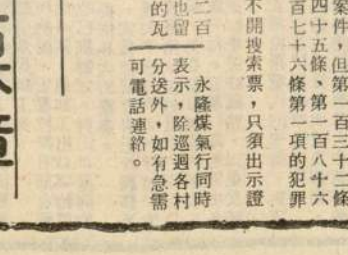 案件，但第一百三十二條
四十五條、第一百八十六
百七十六條第一項的犯罪
不開搜索票，只須出示證
二百
也留
的瓦
永隆煤氣行同時
表示，除巡迴各村
分送外，如有急需
可電話連絡。